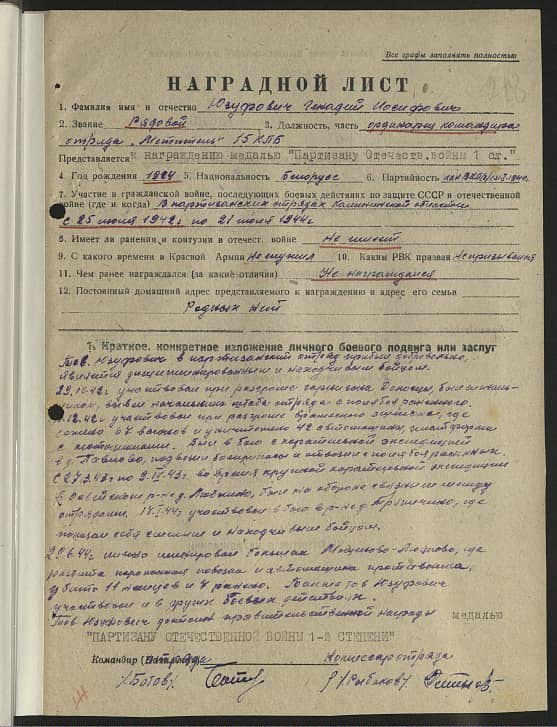 Все графы заполнять полностью
НАГРАДНОЙ ЛИСТ
1. Фамилия имя и отчество Юзуфович Генадий Иосифович
2. Звание Рядовой 3. Должность, часть ординарец командира
отряда „Мститель" 15 КПБ
Представляется к награждению медалью "Партизану Отечеств.войны 1 ст."
4. Год рождения 1924 5. Национальность белорус 6. Партийность
7. Участие в гражданской войне, последующих боевых действиях по защите СССР в отечественной
войне (где и когда) В партизанских отрядах Калининской области
с 25 июля 1942г по 21 июля 1944г
8. Имеет ли ранения и контузии в отечест. войне Не имеет
9. С какого времени в Красной Армии Не служил 10. Каким РВК призван Не призывался
11. Чем ранее награждался (за какие отличия) Не награждался
12. Постоянный домашний адрес представляемого к награждению и адрес его семьи
Родных нет
1. Краткое, конкретное изложение личного боевого подвига или заслуг
Тов. Юзуфович в партизанский отряд прибыл добровольно,
является дисциплинированным и находчивым бойцом.
29.10.42г участвовал при разгроме гарнизона
вывел начальника штаба отряда с поля боя раненого.
12.42г участвовал при разгроме вражеского эшелона, где
сожжено 67 вагонов и уничтожено 42 автомашины, платформа
с мотоциклами. Был в бою с карательной экспедицией
в д. Павлово, подвозил боеприпасы и отвозил с поля боя раненых.
С 27.3.43г по 9.IV.43г во время крупной карательной экспедиции
в р-не д. был на обороне связным между
отрядами. участвовал в бою в р-не д.
показал себя смелым и находчивым бойцом.
29.6.44г лично минировал большак где
разбита и автомашина противника,
убито 11 немцев и 4 ранено. Юзуфович
участвовал и в других боевых действиях.
Тов Юзуфович достоин правительственной награды медалью
"ПАРТИЗАНУ ОТЕЧЕСТВЕННОЙ ВОЙНЫ 1-й СТЕПЕНИ"
Командир отряда Комиссар отряда
/Ботов/ /Рыбаков/